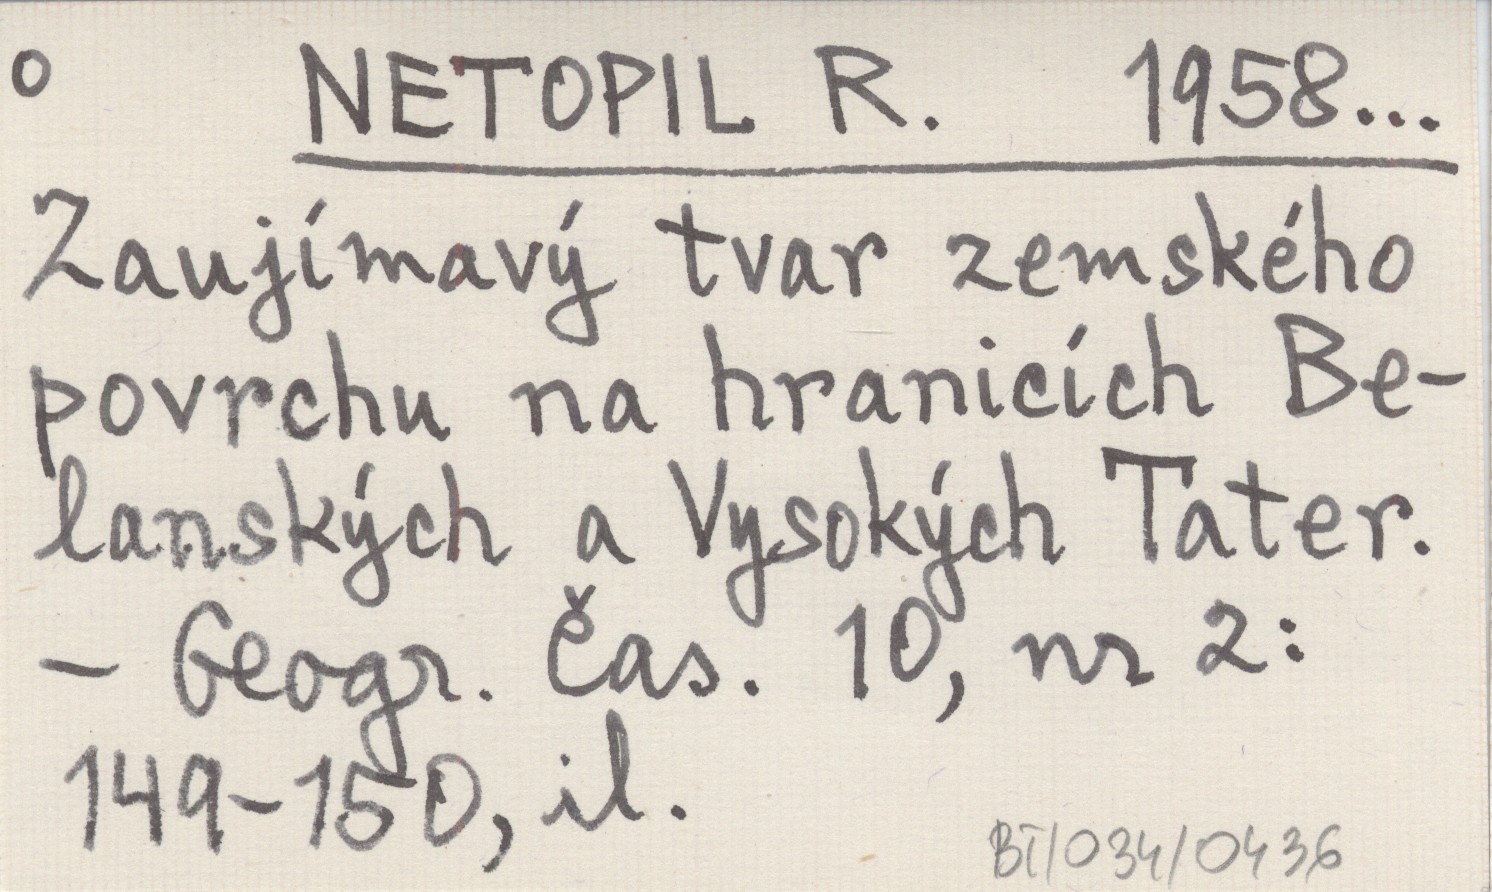 o NETOPIL R. 1958...
Zaujímavý tvar zemského
povrchu na hranicích Be-
lanských a Vysokých Tater.
- Geogr. čas. 10, nr 2:
149-150, il.
BT/034/0436